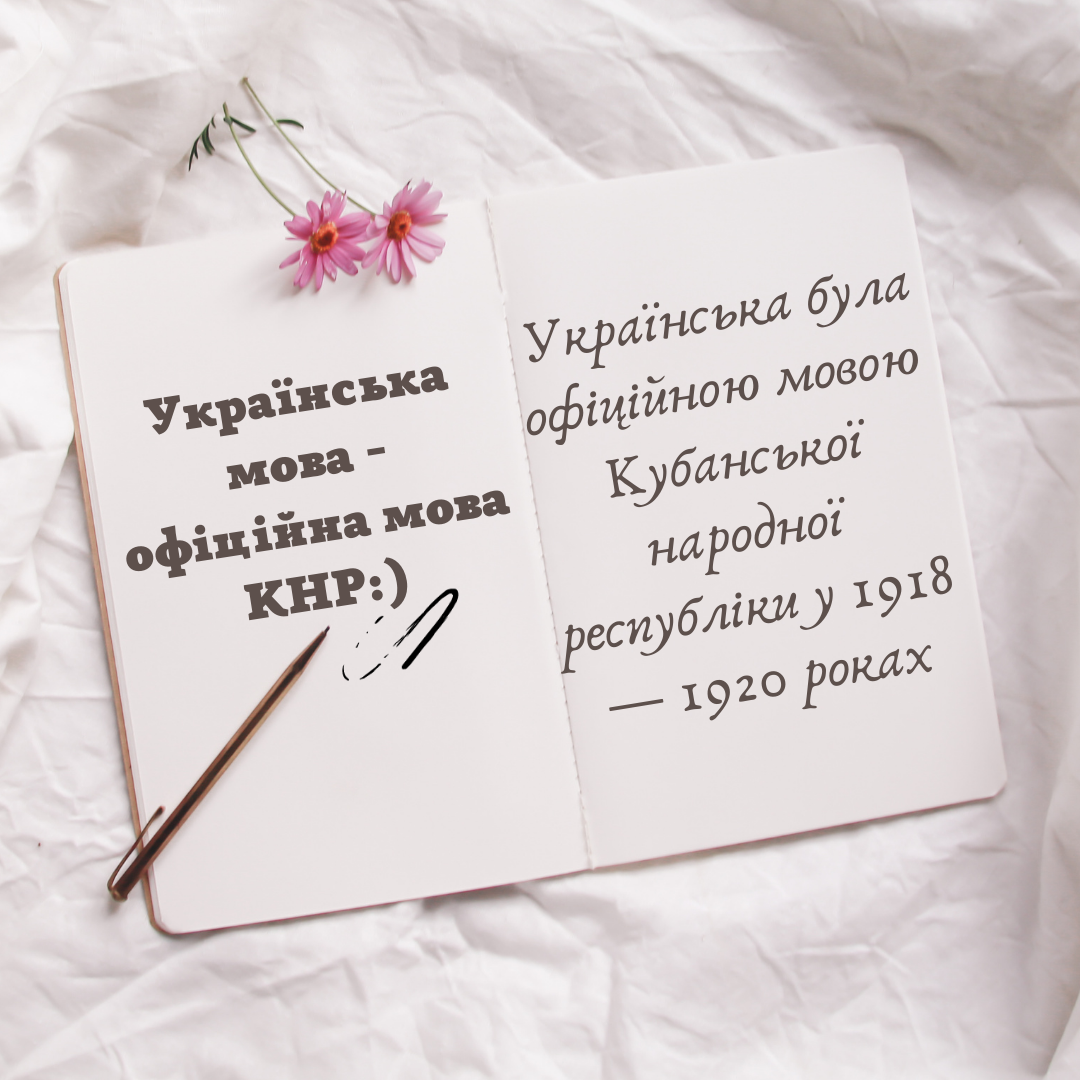 Українська
мова -
офіційна мова
КНР:)
Українська була
офіційною мовою
Кубанської
народної
республіки у 1918
— 1920 роках